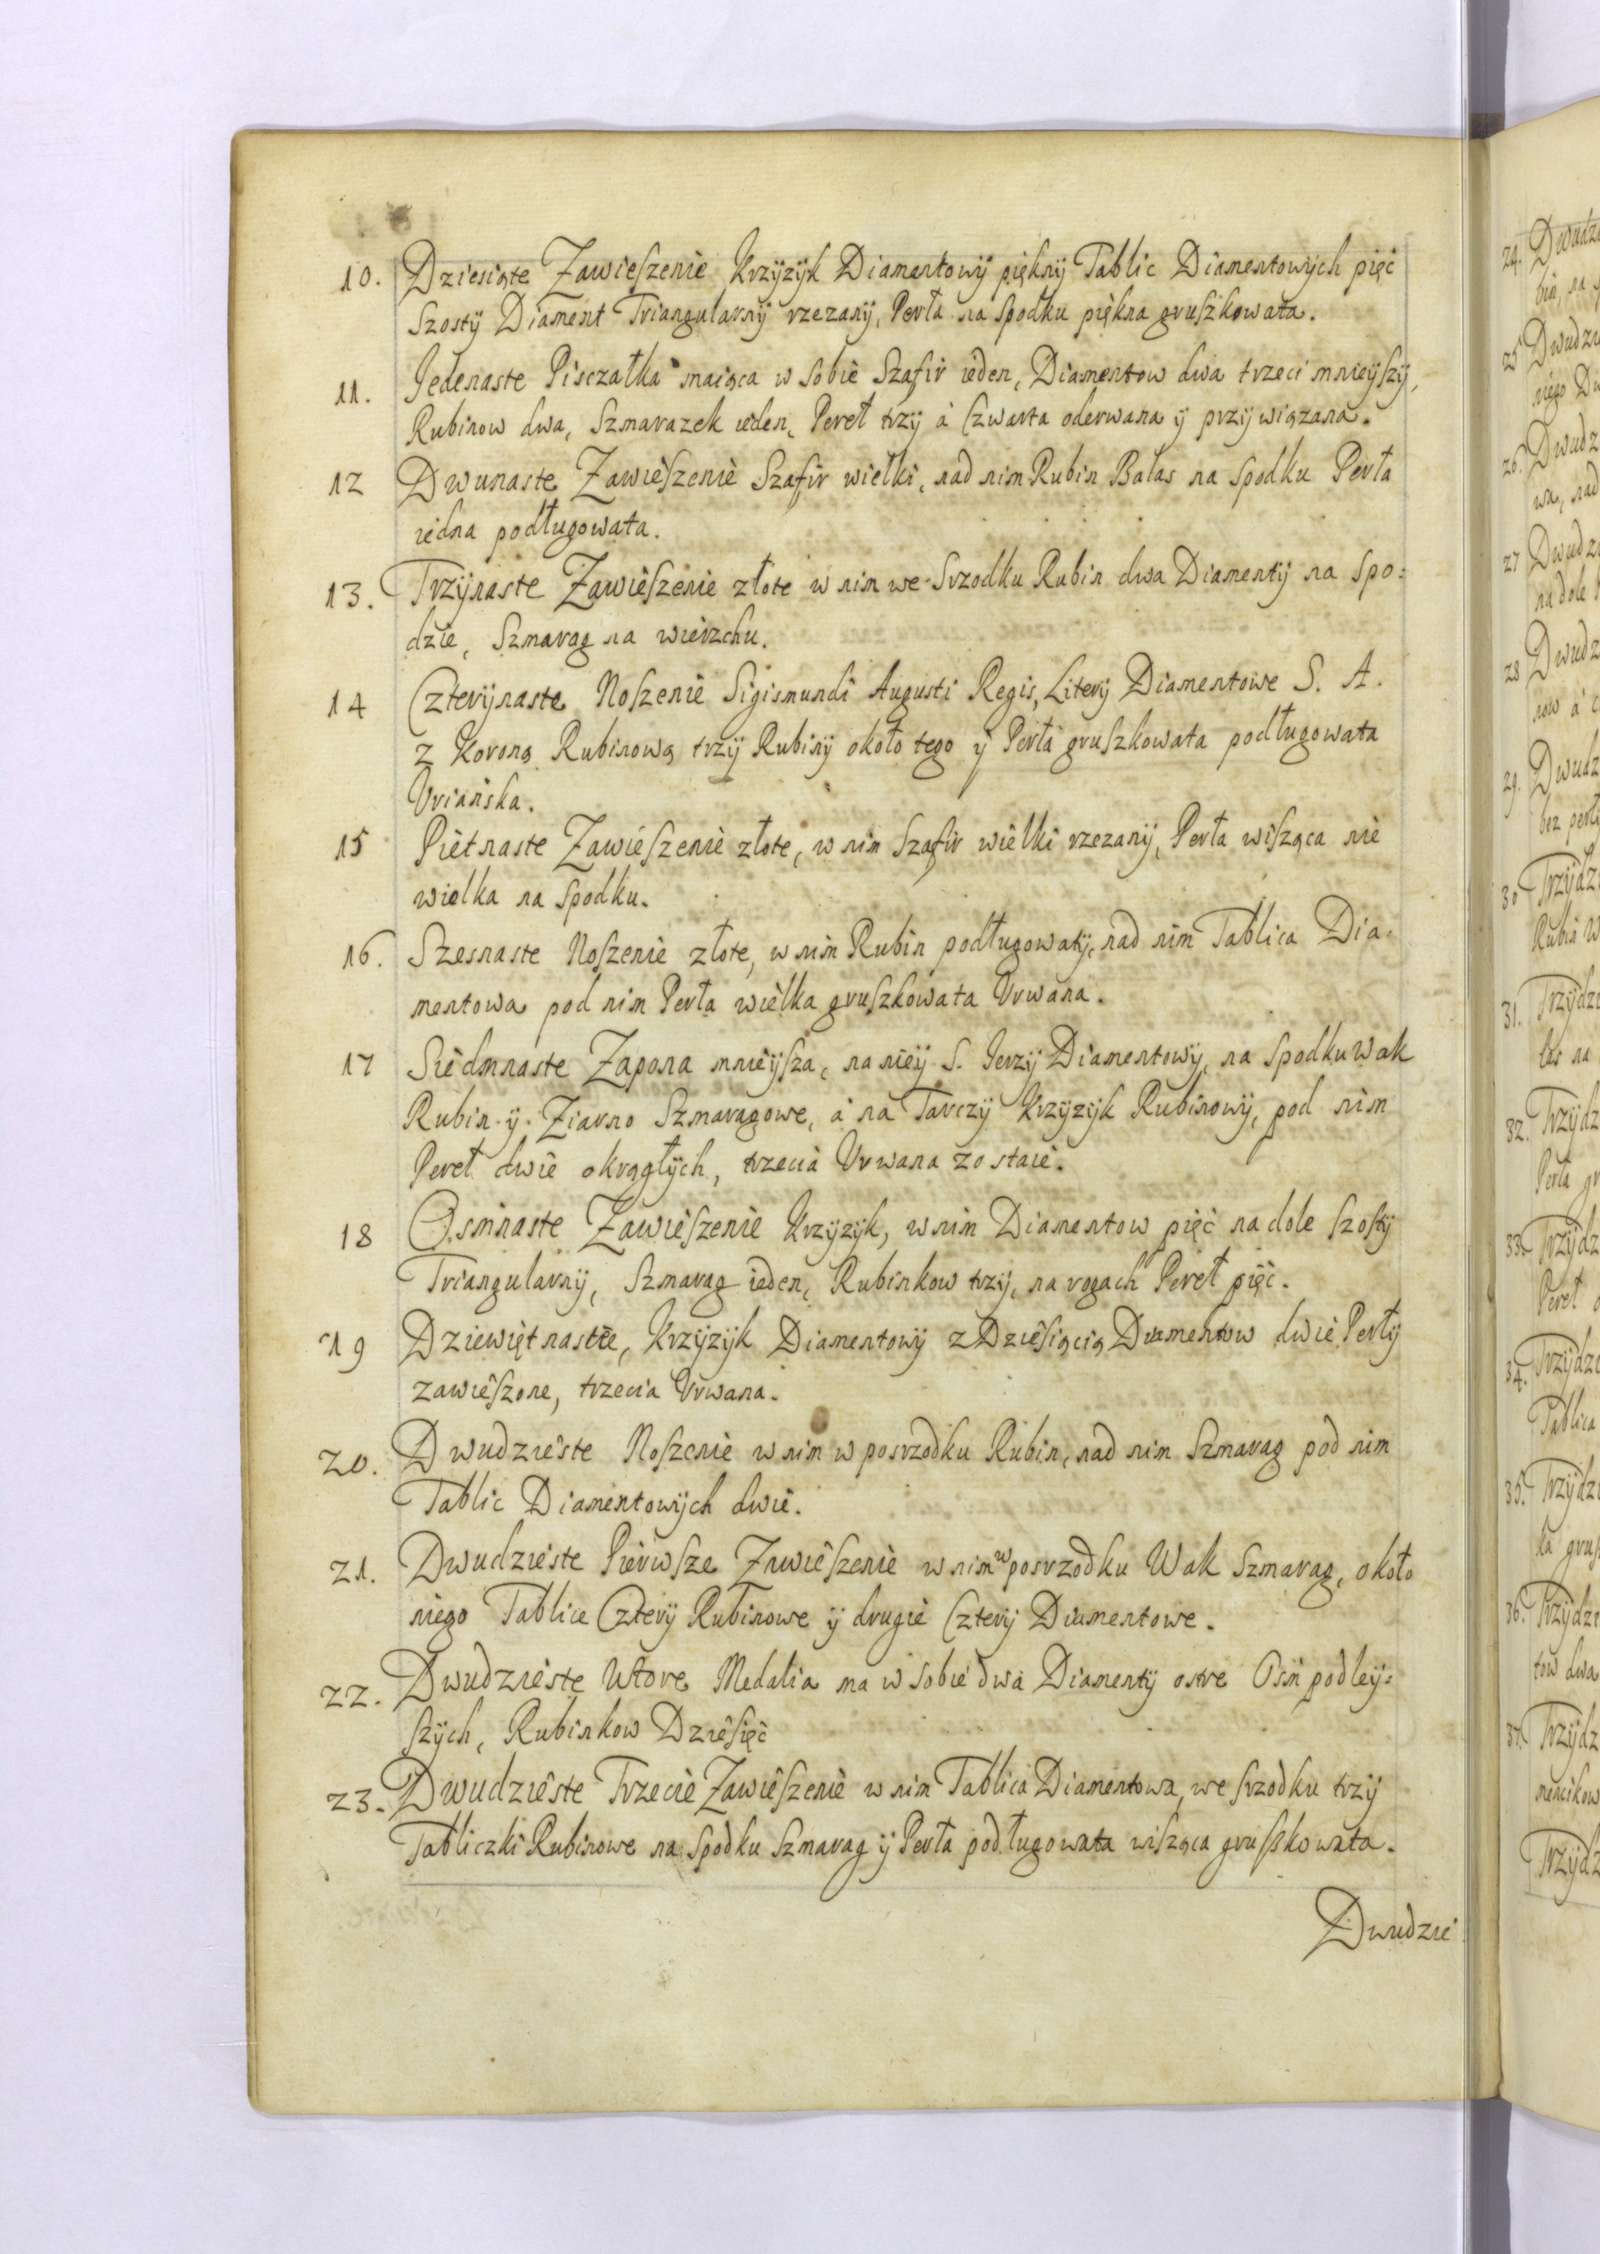 10. Dziesiąte Zawieszenie Krzÿzÿk Diamentowÿ pięknÿ Tablic Diamentowÿch pięć
Szostÿ Diament Triangularnÿ rzezanÿ, Perła na Spodku piękna gruszkowata.
11. Jedenaste Pisczałka maiąca w Sobie Szafir ieden, Diamentow dwa trzeci mnieÿszÿ,
Rubinow dwa, Szmarazek ieden, Pereł trzÿ à Czwarta oderwana ÿ przÿwiązana.
12 Dwunaste Zawieszenie Szafir wielki, nad nim Rubin Bałas na Spodku Perła
iedna podługowata.
13. Trzÿnaste Zawieszenie złote w nim we Srzodku Rubin dwa Diamentÿ na spo:
dzie, Szmarag na wierzchu.
14 Czterÿnaste Noszenie Sigismundi Augusti Regis, Literÿ Diamentowe S. A.
z Koroną Rubinową trzÿ Rubinÿ około tego ÿ Perła gruszkowata podługowata
Vriańska.
15 Piętnaste Zawieszenie złote, w nim Szafir wielki rzezanÿ, Perła wisząca nie
wielka na Spodku.
16. Szesnaste Noszenie złote, w nim Rubin podługowatÿ, nad nim Tablica Dia-
mentowa pod nim Perła wielka gruszkowata Vrwana.
17 Siedmnaste Zapona mnieÿsza, na nieÿ S. Jerzÿ Diamentowÿ, na spodku Wak
Rubin ÿ Ziarno Szmaragowe, à na Tarczÿ Krzÿzÿk Rubinowÿ, pod nim
Pereł dwie okrągłÿch, trzecia Vrwana zostaie.
18 Osmnaste Zawieszenie Krzÿzÿk, w nim Diamentow pięć na dole szostÿ
Triangularnÿ, Szmarag ieden, Rubinkow trzÿ, na rogach Pereł pięć.
19 Dziewiętnaste, Krzÿzÿk Diamentowÿ z Dziesiącią Diamentow dwie Perłÿ
zawieszone, trzecia Vrwana.
20. Dwudzieste Noszenie w nim w posrzodku Rubin, nad nim Szmarag pod nim
Tablic Diamentowÿch dwie.
21. Dwudzieste Pierwsze Zawieszenie w nim w posrzodku Wak Szmarag, około
niego Tablice Czterÿ Rubinowe ÿ drugie Czterÿ Diamentowe.
22. Dwudzieste Wtore Medalia ma w Sobie dwa Diamentÿ ostre Osm podleÿ:
szÿch, Rubinkow Dziesięć
23. Dwudzieste Trzecie Zawieszenie w nim Tablica Diamentowa, we srzodku trzÿ
Tabliczki Rubinowe na Spodku Szmarag ÿ Perła podługowata wisząca gruszkowata.
Dwudzie
24. Dwudz
bin, na
25 Dwudzi
niego Di
26. Dwudz
wa, nad
27 Dwudz
na dole
28 Dwudz
now à
29. Dwudz
bez perł
30 Trzÿdz
Rubin W
31. Trzÿdz
las na
32. Trzÿdz
Perła gr
33. Trzÿdz
Pereł
34. Trzÿdz
Tablica
35. Trzÿdz
ła grus
36. Trzÿdz
tow dwa
37. Trzÿdz
mencikow
Trzÿdz